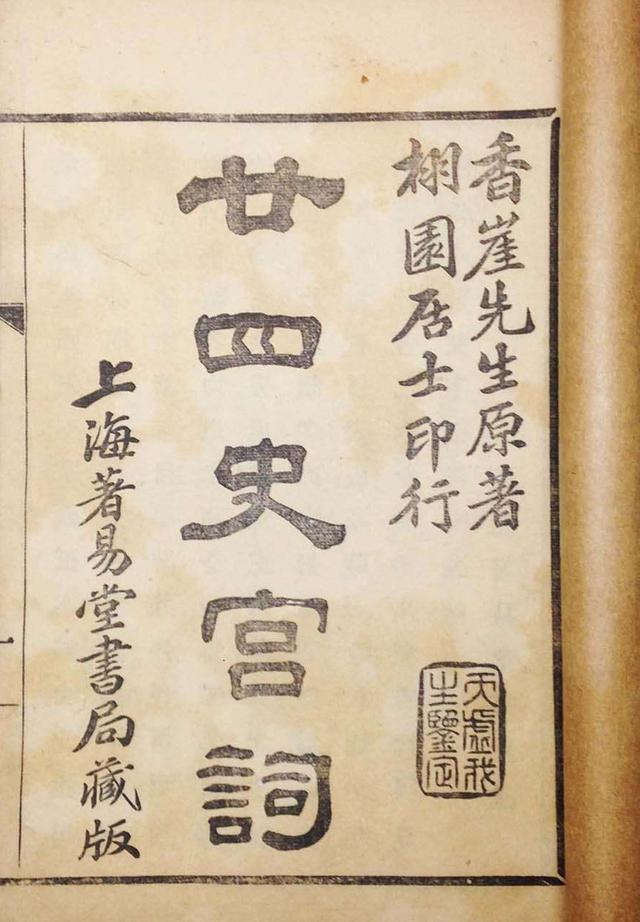 香崖先生原著
栩園居士印行
天虛我
生鑒定
廿四史宮詞
上海著易堂書局藏版